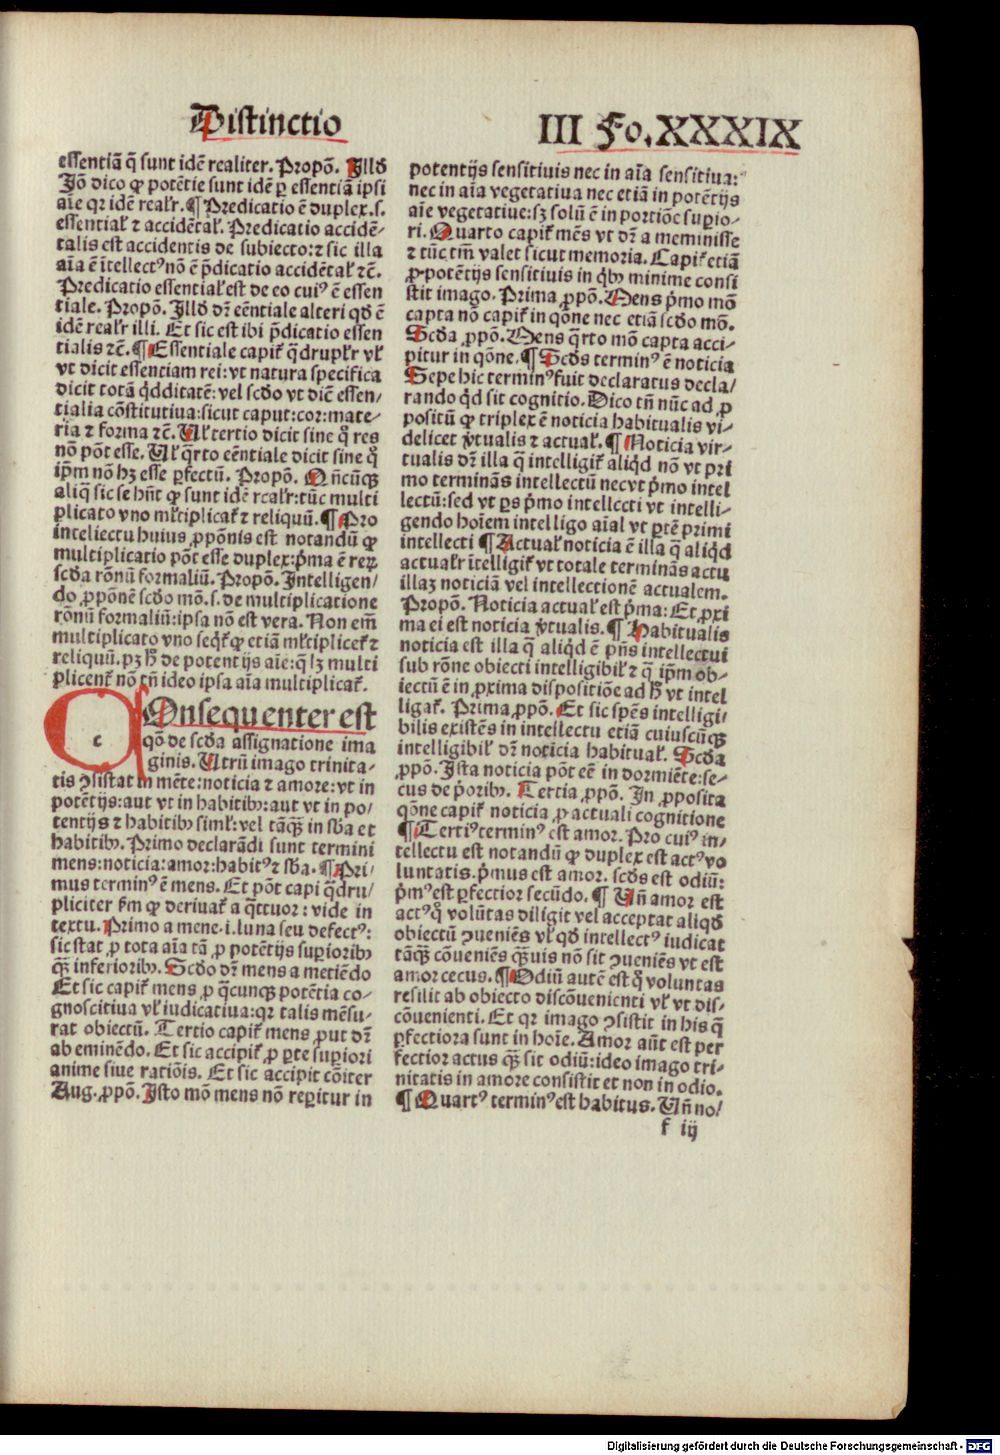 Distinctio III Fo. XXXIX
essentiā q̄ sunt idē realiter. Propō. Illō
Jō dico ꝙ potētie sunt idē ꝑ essentiā ipsi
aīe qꝛ idē realr̄. ¶ Predicatio ē duplex .s.
essentiał ⁊ accidētał. Predicatio accidē-
talis est accidentis de subiecto: ⁊ sic illa
aīa ē ītellectꝰ nō ē p̄dicatio accidētał ⁊c̄.
Predicatio essentiał est de eo cuiꝰ ē essen
tiale. Propō. Illō dꝛ eēntiale alteri qđ ē
idē realr̄ illi. Et sic est ibi p̄dicatio essen
tialis ⁊c̄. ¶ Essentiale capit̄ q̄druplr̄ vł
vt dicit essentiam rei: vt natura specifica
dicit totā qd̄ditatē: vel scđo vt dic̄ essen/
tialia cōstitutiua: sicut caput: cor: mate-
ria ⁊ forma ⁊c̄. Uł tertio dicit sine q̊ res
nō pōt esse. Uł q̄rto eēntiale dicit sine q̊
ip̄m nō hꝫ esse ꝑfectū. Propō. Qn̄cūqꝫ
aliq̄ sic se hn̄t ꝙ sunt idē realr̄: tūc multi
plicato vno młtiplicat̄ ⁊ reliquū. ¶ Pro
intellectu huius ꝓpōnis est notandū ꝙ
multiplicatio pōt esse duplex: p̄ma ē reꝝ
scđa rōnū formaliū. Propō. Intelligen/
do ꝓpōnē scđo mō .s. de multiplicatione
rōnū formaliū: ipsa nō est vera. Non em̄
multiplicato vno seqt̄ ꝙ etiā młtiplicet̄ ⁊
reliquū. pꝫ h̄ de potentijs aīe: q̄ lꝫ multi
plicent̄ nō tn̄ ideo ipsa aīa multiplicat̄.
c
Onsequenter est
qō de scđa assignatione ima
ginis. Utrū imago trinita-
tis ꝯsistat in mēte: noticia ⁊ amore: vt in
potētijs: aut vt in habitibꝰ: aut vt in po/
tentijs ⁊ habitibꝰ simł: vel tāqꝫ in sb̄a et
habitibꝰ. Primo declarādi sunt termini
mens: noticia: amor: habitꝰ ⁊ sb̄a. ¶ Pri/
mus terminꝰ ē mens. Et pōt capi q̄dru/
pliciter ẜm ꝙ deriuat̄ a q̄ttuor: vide in
textu. Primo a mene .i. luna seu defectꝰ:
sic stat ꝓ tota aīa tā ꝓ potētijs supioribꝰ
qꝫ inferioribꝰ. Scđo dꝛ mens a metiēdo
Et sic capit̄ mens ꝓ q̄cunqꝫ potētia co-
gnoscitiua vł iudicatiua: qꝛ talis mēsu-
rat obiectū. Tertio capit̄ mens ꝓut dꝛ
ab eminēdo. Et sic accipit̄ ꝓ ꝑte supiori
anime siue ratiōis. Et sic accipit cōiter
Aug. ꝓpō. Isto mō mens nō reꝑitur in
potentijs sensitiuis nec in aīa sensitiua:
nec in aīa vegetatiua nec etiā in potētijs
aīe vegetatiue: sꝫ solū ē in portiōe suꝑio-
ri. Quarto capit̄ mēs vt dꝛ a meminisse
⁊ tūc tm̄ valet sicut memoria. Capit̄ etiā
ꝓ potētijs sensitiuis in qbꝰ minime consi
stit imago. Prima ꝓpō. Mens p̄mo mō
capta nō capit̄ in qōne nec etiā scđo mō.
Scđa ꝓpō. Mens q̄rto mō capta acci-
pitur in qōne. ¶ Scđs terminꝰ ē noticia
Sepe hic terminꝰ fuit declaratus decla/
rando qd̄ sit cognitio. Dico tn̄ nūc ad ꝓ
positū ꝙ triplex ē noticia habitualis vi-
delicet v̄tualis ⁊ actuał. ¶ Noticia vir-
tualis dꝛ illa q̄ intelligit̄ aliqd̄ nō vt pri
mo terminās intellectū nec vt p̄mo intel
lectū: sed vt ꝑs p̄mo intellecti vt intelli-
gendo hoīem intelligo aīal vt ꝑtē primi
intellecti ¶ Actuał noticia ē illa q̄ aliqd̄
actualr̄ ītelligit̄ vt totale terminās actu
illaꝫ noticiā vel intellectionē actualem.
Propō. Noticia actuał est p̄ma: Et ꝓxi
ma ei est noticia v̄tualis. ¶ Habitualis
noticia est illa q̄ aliqd̄ ē pn̄s intellectui
sub rōne obiecti intelligibił ⁊ q̄ ip̄m ob-
iectū ē in ꝓxima dispositiōe ad h̄ vt intel
ligat̄. Prima ꝓpō. Et sic spēs intelligi-
bilis existēs in intellectu etiā cuiuscūqꝫ
intelligibił dꝛ noticia habituał. Scđa
ꝓpō. Ista noticia pōt eē in dormiēte: se-
cus de p̄oribꝰ. Tertia ꝓpō. In ꝓposita
qōne capit̄ noticia ꝓ actuali cognitione
¶ Tertiꝰ terminꝰ est amor. Pro cuiꝰ in/
tellectu est notandū ꝙ duplex est actꝰ vo
luntatis. p̄mus est amor. scđs est odiū:
p̄mꝰ est ꝑfectior secūdo. ¶ Un̄ amor est
actꝰ q̊ volūtas diligit vel acceptat aliqđ
obiectū ꝯueniēs vł qđ intellectꝰ iudicat
tāqꝫ cōueniēs qꝫuis nō sit ꝯueniēs vt est
amor cecus. ¶ Odiū autē est q̊ voluntas
resilit ab obiecto discōuenienti vł vt dis-
cōuenienti. Et qꝛ imago ꝯsistit in his q̄
ꝑfectiora sunt in hoīe. Amor aūt est per
fectior actus qꝫ sit odiū: ideo imago tri-
nitatis in amore consistit et non in odio.
¶ Quartꝰ terminꝰ est habitus. Un̄ no/
f iij
Digitalisierung gefördert durch die Deutsche Forschungsgemeinschaft - DFG